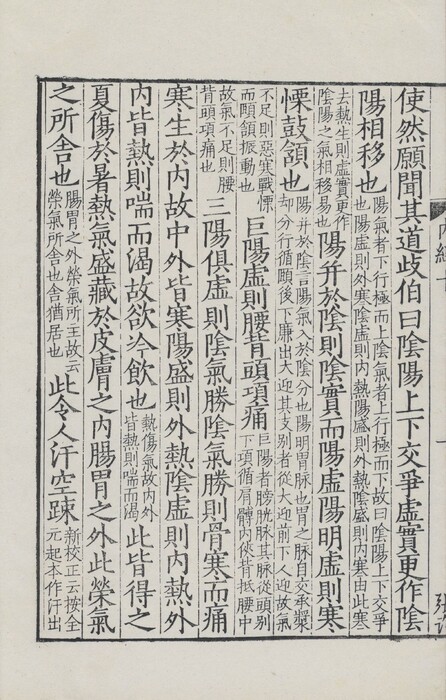 使然願聞其道歧伯曰陰陽上下交爭虛實更作陰
陽相移也
陽氣者下行極而上陰氣者上行極而下故曰陰陽上下交爭
也陽虛則外寒陰虛則内熱陽盛則外熱陰盛則内寒由此寒
去熱生則虛實更作
陰陽之氣相移易也
陽并於陰則陰實而陽虛陽明虛則寒
慄鼓頷也
陽并於陰言陽氣入於陰分也陽明胃脉也胃之脉自交承漿
却分行循頤後下廉出大迎其支别者從大迎前下人迎故氣
不足則惡寒戰慄
而頤頷振動也
巨陽虛則腰背頭項痛
巨陽者膀胱脉其脉從頭别
下項循肩髆内俠背抵腰中
故氣不足則腰
背頭項痛也
三陽俱虛則陰氣勝陰氣勝則骨寒而痛
寒生於内故中外皆寒陽盛則外熱陰虛則内熱外
内皆熱則喘而渴故欲冷飲也
熱傷氣故内外
皆熱則喘而渴
此皆得之
夏傷於暑熱氣盛藏於皮膚之内腸胃之外此榮氣
之所舍也
腸胃之外榮氣所主故云
榮氣所舍也舍猶居也
此令人汗空踈
新校正云按全
元起本作汗出